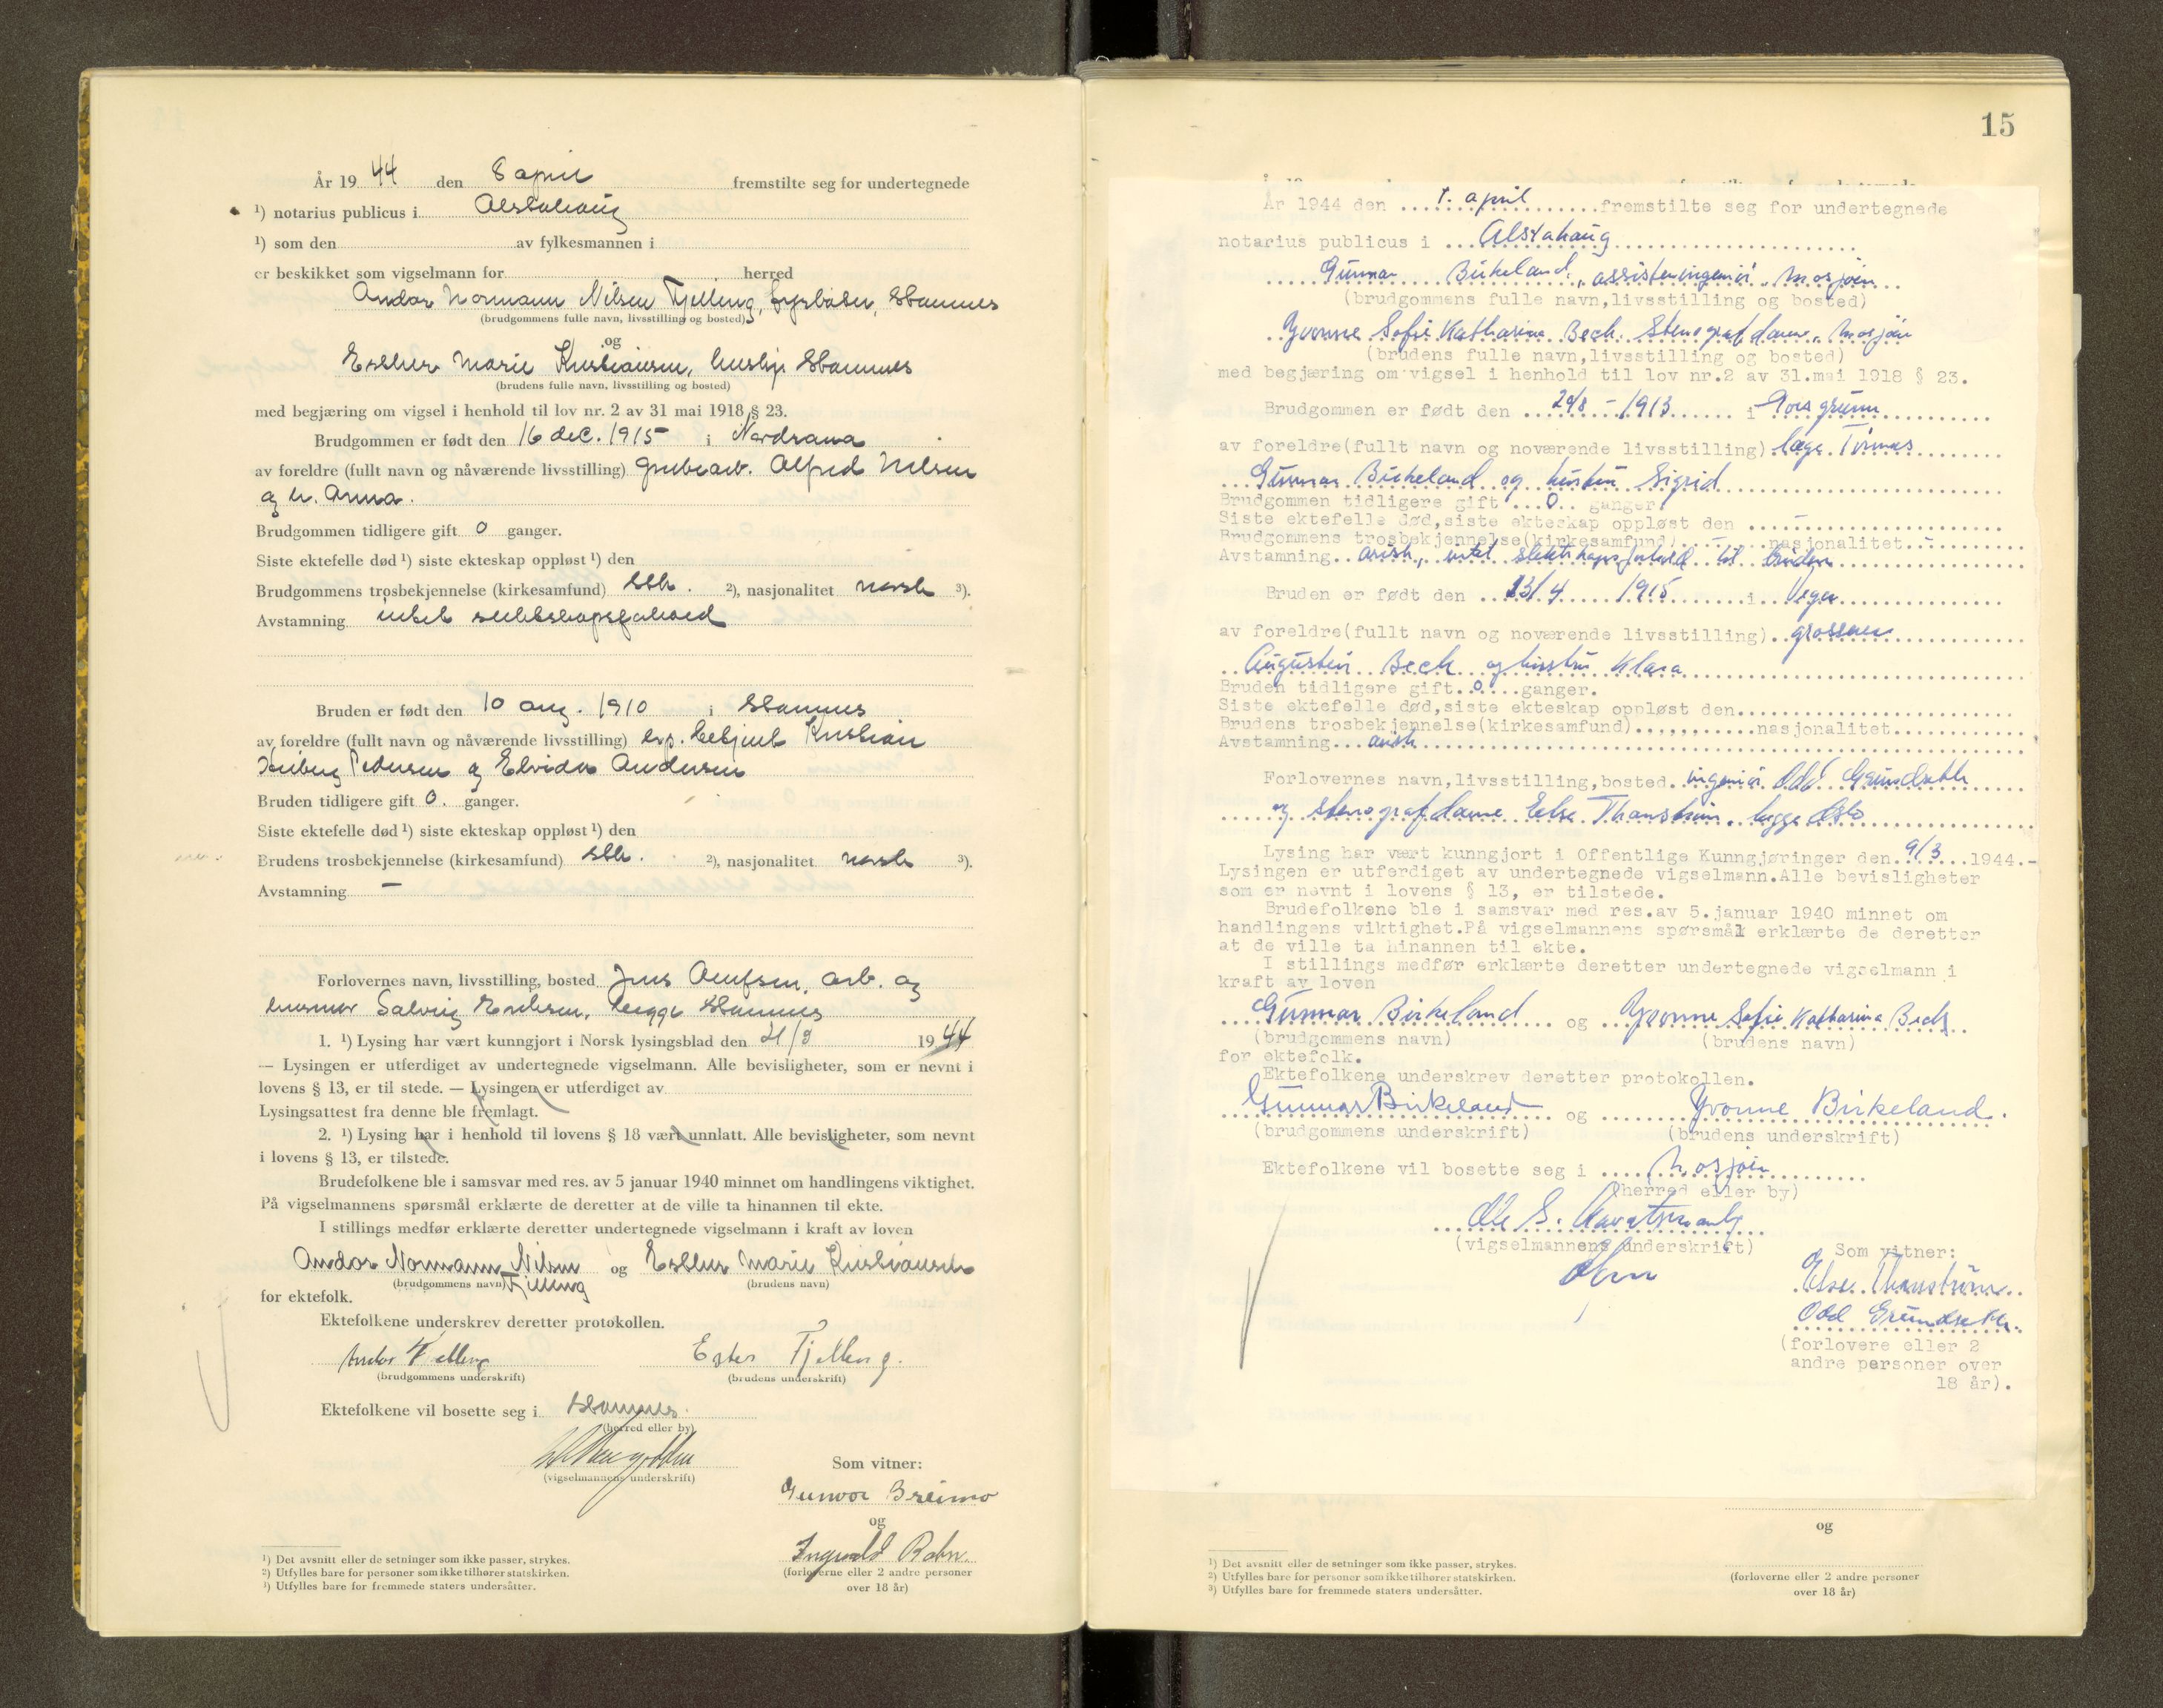 År 19 44 den 8 april fremstilte seg for undertegnede
¹) notarius publicus i Alstahaug
¹) som den av fylkesmannen i
er beskikket som vigselmann for herred
Andor Normann Nilsen Fjelleng, fyrbøter, Stamnes
(brudgommens fulle navn, livsstilling og bosted)
og
Esther Marie Kristiansen, hushj. Stamnes
(brudens fulle navn, livsstilling og bosted)
med begjæring om vigsel i henhold til lov nr. 2 av 31 mai 1918 § 23.
Brudgommen er født den 16 dec. 1915 i Nordrana
av foreldre (fullt navn og nåværende livsstilling) grubearb. Alfred Nilsen
og h. Anna.
Brudgommen tidligere gift 0 ganger.
Siste ektefelle død ¹) siste ekteskap oppløst ¹) den
Brudgommens trosbekjennelse (kirkesamfund) stk. ²), nasjonalitet norsk ³).
Avstamning intet slektskapsforhold
Bruden er født den 10 aug. 1910 i Stamnes
av foreldre (fullt navn og nåværende livsstilling) Kristian
Pedersen og Andersen
Bruden tidligere gift 0. ganger.
Siste ektefelle død ¹) siste ekteskap oppløst ¹) den
Brudens trosbekjennelse (kirkesamfund) stk. ²), nasjonalitet norsk ³).
Avstamning —
Forlovernes navn, livsstilling, bosted Jens Olufsen, arb. og
husmor Solveig begge Stamnes
1. ¹) Lysing har vært kunngjort i Norsk lysingsblad den 21/3 1944
— Lysingen er utferdiget av undertegnede vigselmann. Alle bevisligheter, som er nevnt i
lovens § 13, er til stede. — Lysingen er utferdiget av
Lysingsattest fra denne ble fremlagt.
2. ¹) Lysing har i henhold til lovens § 18 vært unnlatt. Alle bevisligheter, som nevnt
i lovens § 13, er tilstede.
Brudefolkene ble i samsvar med res. av 5 januar 1940 minnet om handlingens viktighet.
På vigselmannens spørsmål erklærte de deretter at de ville ta hinannen til ekte.
I stillings medfør erklærte deretter undertegnede vigselmann i kraft av loven
Andor Normann Nilsen og Esther Marie Kristiansen
(brudgommens navn) Fjelleng (brudens navn)
for ektefolk.
Ektefolkene underskrev deretter protokollen.
Andor Fjelleng Ester Fjelleng.
(brudgommens underskrift) (brudens underskrift)
Ektefolkene vil bosette seg i Stamnes.
(herred eller by)
(vigselmannens underskrift)
Som vitner:
Gunvor Breimo
og
Ingvald Rohn.
(forloverne eller 2 andre personer
over 18 år)
¹) Det avsnitt eller de setninger som ikke passer, strykes.
²) Utfylles bare for personer som ikke tilhører statskirken.
³) Utfylles bare for fremmede staters undersåtter.
15
År 1944 den 1. april fremstilte seg for undertegnede
notarius publicus i Alstahaug
Gunnar Birkeland, assisteningeniør, Mosjøen
(brudgommens fulle navn,livsstilling og bosted)
Yvonne Sofie Katharina Bech. Stenografdame, Mosjøen
(brudens fulle navn,livsstilling og bosted)
med begjæring om vigsel i henhold til lov nr.2 av 31.mai 1918 § 23.
Brudgommen er født den 20/8 - 1913 i Porsgrunn
av foreldre(fullt navn og noværende livsstilling) læge
Gunnar Birkeland og hustru Sigrid
Brudgommen tidligere gift 0 ganger
Siste ektefelle død,siste ekteskap oppløst den -
Brudgommens trosbekjennelse(kirkesamfund) - nasjonalitet -
Avstamning arisk, intet slektskapsforhold til bruden
Bruden er født den 13/4 1915 i Vega
av foreldre(fullt navn og noværende livsstilling) grosserer
Augustin Bech og hustru Klara
Bruden tidligere gift 0 ganger.
Siste ektefelle død,siste ekteskap oppløst den
Brudens trosbekjennelse(kirkesamfund) nasjonalitet
Avstamning arisk
Forlovernes navn,livsstilling,bosted ingeniør Odd Grundseth
og stenografdame Else Thanstrøm, begge Oslo
Lysing har vært kunngjort i Offentlige Kunngjøringer den 9/3 1944.-
Lysingen er utferdiget av undertegnede vigselmann.Alle bevisligheter
som er nevnt i lovens § 13, er tilstede.
Brudefolkene ble i samsvar med res.av 5.januar 1940 minnet om
handlingens viktighet.På vigselmannens spørsmål erklærte de deretter
at de ville ta hinannen til ekte.
I stillings medfør erklærte deretter undertegnede vigselmann i
kraft av loven
Gunnar Birkeland og Yvonne Sofie Katharina Bech
(brudgommens navn) (brudens navn)
for ektefolk.
Ektefolkene underskrev deretter protokollen.
Gunnar Birkeland og Yvonne Birkeland.
(brudgommens underskrift) (brudens underskrift)
Ektefolkene vil bosette seg i Mosjøen
(herred eller by)
Ole S.
(vigselmannens underskrift)
Som vitner:
Else Thanstrøm
Odd Grundseth.
(forlovere eller 2
andre personer over
18 år).
og
(forloverne eller 2 andre personer
over 18 år)
¹) Det avsnitt eller de setninger som ikke passer, strykes.
²) Utfylles bare for personer som ikke tilhører statskirken.
³) Utfylles bare for fremmede staters undersåtter.